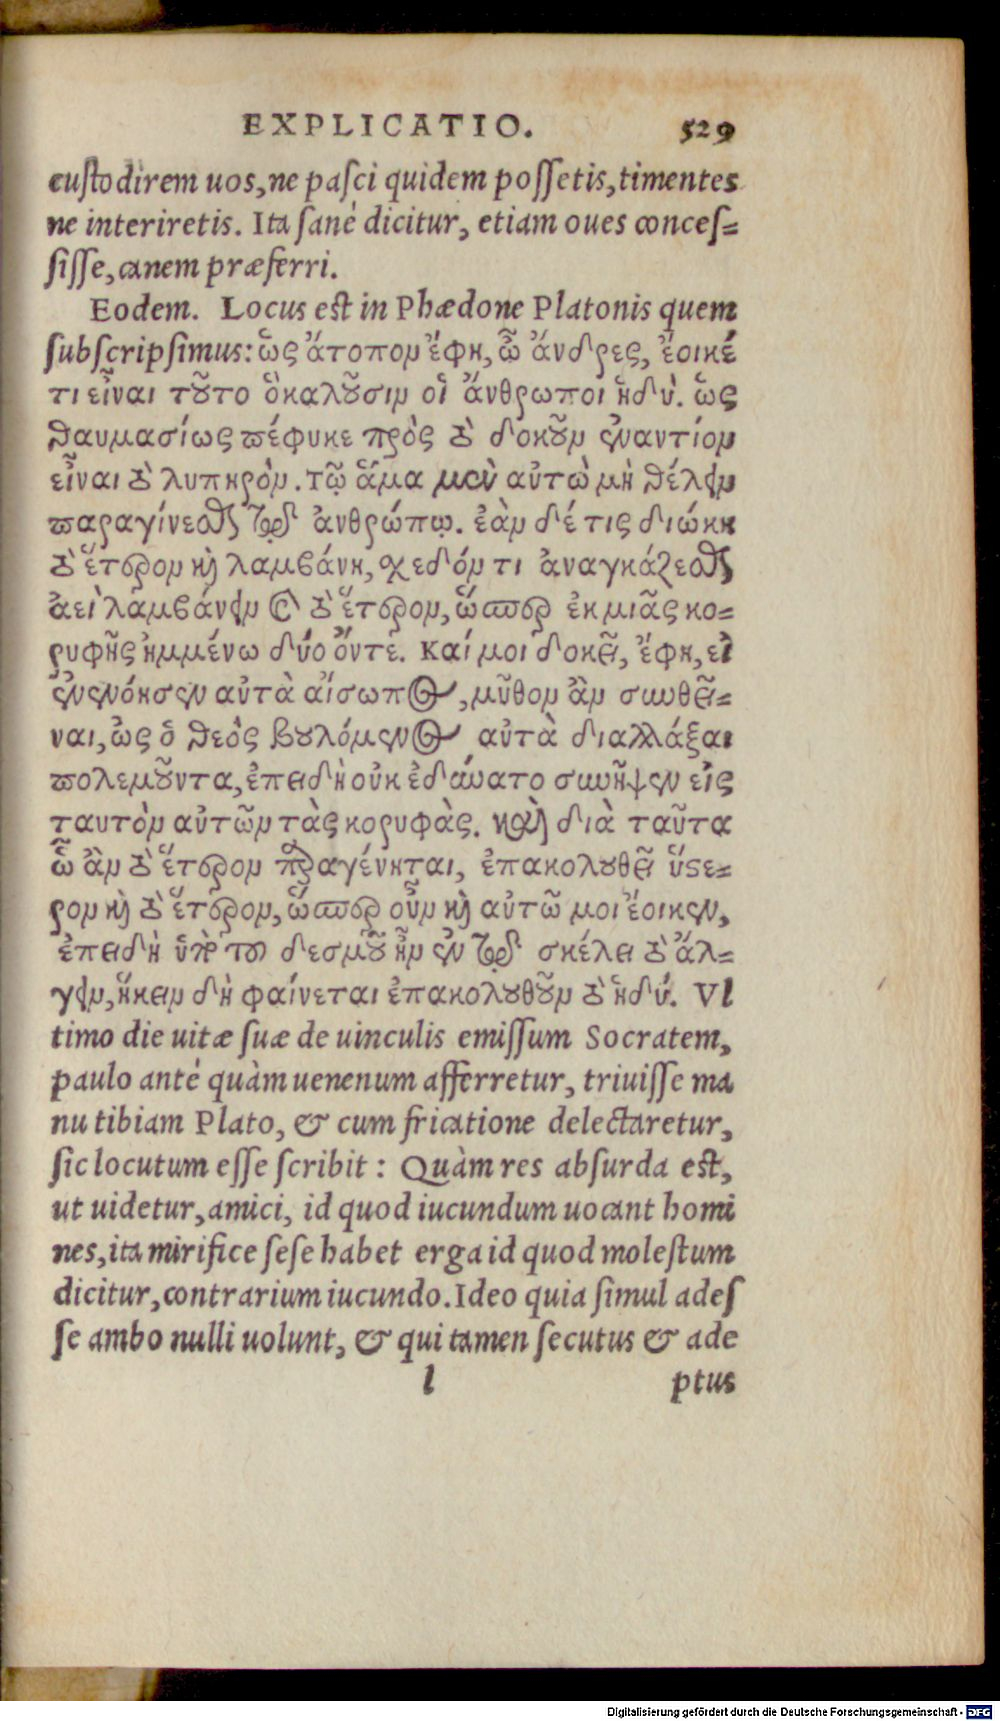 EXPLICATIO. 529
custodirem uos, ne pasci quidem possetis, timentes
ne interiretis. Ita sanè dicitur, etiam oues conces-
sisse, canem præferri.
Eodem. Locus est in Phædone Platonis quem
subscripsimus: ὣς ἄτοπομ ἔφη, ὦ ἄνδρες, ἔοικέ
τι εἶναι τοῦτο ὃ καλοῦσιμ οἱ ἄνθρωποι ἡδύ. ὣς
θαυμασίως πέφυκε πρὸς τὸ δοκοῦμ ἐναντίομ
εἶναι τὸ λυπηρόμ. τῷ ἅμα μὲν αὐτὼ μὴ θέλειμ
παραγίνεσθαι τῷ ἀνθρώπῳ. ἐὰμ δέ τις διώκη
τὸ ἕτερομ καὶ λαμβάνη, σχεδόμ τι ἀναγκάζεσθαι
ἀεὶ λαμβάνειμ καὶ τὸ ἕτερομ, ὥσπερ ἐκ μιᾶς κο-
ρυφῆς ἡμμένω δύο ὄντε. Καί μοι δοκεῖ, ἔφη, εἰ
ἐνενόησεν αὐτὰ αἴσωπος, μῦθομ ἂμ συνθεῖ-
ναι, ὡς ὁ θεὸς βουλόμενος αὐτὰ διαλλάξαι
πολεμοῦντα, ἐπειδὴ οὐκ ἐδύνατο συνῆψεν εἰς
ταυτὸμ αὐτῶμ τὰς κορυφὰς. καὶ διὰ ταῦτα
ᾧ ἂμ τὸ ἕτερομ παραγένηται, ἐπακολουθεῖ ὕστε-
ρομ καὶ τὸ ἕτερομ, ὥσπερ οὖμ καὶ αὐτῶ μοι ἔοικεν,
ἐπειδὴ ὑπὸ τοῦ δεσμοῦ ἦμ ἐν τῷ σκέλει τὸ ἄλ-
γειμ, ἥκειμ δὴ φαίνεται ἐπακολουθοῦμ τὸ ἡδύ. Vl
timo die uitæ suæ de uinculis emissum Socratem,
paulo antè quàm uenenum afferretur, triuisse ma
nu tibiam Plato, & cum fricatione delectaretur,
sic locutum esse scribit: Quàm res absurda est,
ut uidetur, amici, id quod iucundum uocant homi
nes, ita mirifice sese habet erga id quod molestum
dicitur, contrarium iucundo. Ideo quia simul ades
se ambo nulli uolunt, & qui tamen secutus & ade
l ptus
Digitalisierung gefördert durch die Deutsche Forschungsgemeinschaft - DFG